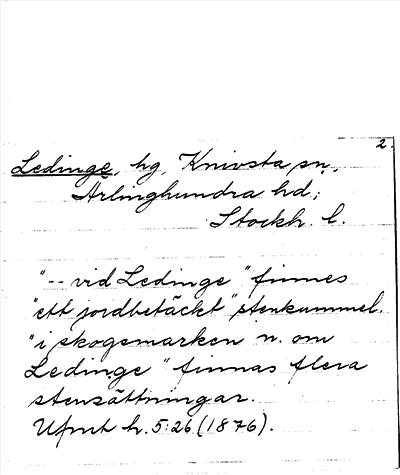 2.
Ledinge, hg, Knivsta sn,
Ärlinghundra hd;
Stockh. l.
"-- vid Ledinge" finnes
"ett jordbetäckt" stenkummel.
"i skogsmarken n. om
Ledinge" finnas flera
stensättningar.
Ufmt h. 5:26 (1876).